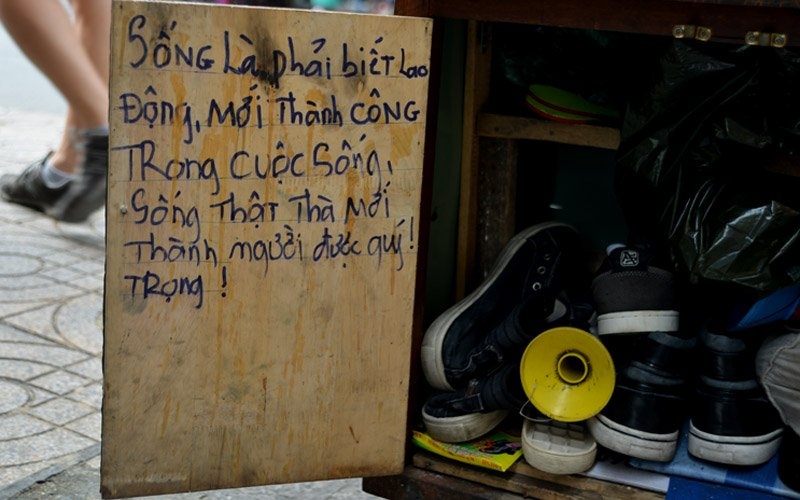 Sống là phải biết lao
động, mới thành công
trong cuộc sống,
sống thật thà mới
thành người được quý!
trọng!